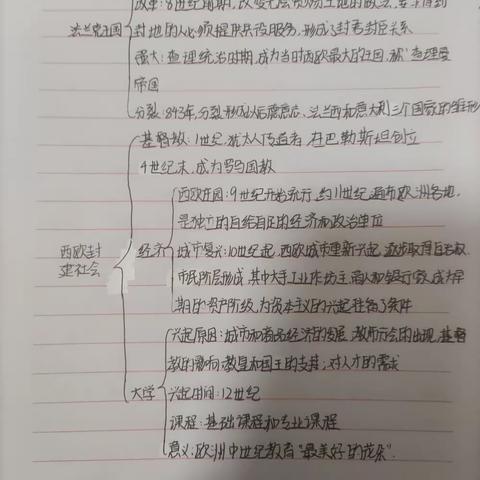 改革:8世纪前期,改变无偿赏赐土地的做法,要求得到
法兰克王国
封地的人必须提供兵役服务,形成了封君封臣关系
强大:查理统治时期,成为当时西欧最大的王国,称"查理曼
帝国
分裂:843年,分裂形成以后德意志、法兰西和意大利三个国家的雏形
基督教:1世纪,犹太人传道者,在巴勒斯坦创立
4世纪末,成为罗马国教
西欧庄园:9世纪开始流行,约11世纪遍布欧洲各地,
是独立的自给自足的经济和政治单位
西欧封建社会
经济
城市复兴:10世纪起,西欧城市重新兴起,逐步取得自治权.
市民阶层形成,其中大手工业作坊主、商人和银行家,成为早
期的资产阶级,为资本主义的兴起准备了条件
兴起原因:城市和商品经济的发展,教师行会的出现,基督
教的影响;教皇和国王的支持;对人才的需求
大学
兴起时间:12世纪
课程:基础课程和专业课程
意义:欧洲中世纪教育"最美好的花朵".